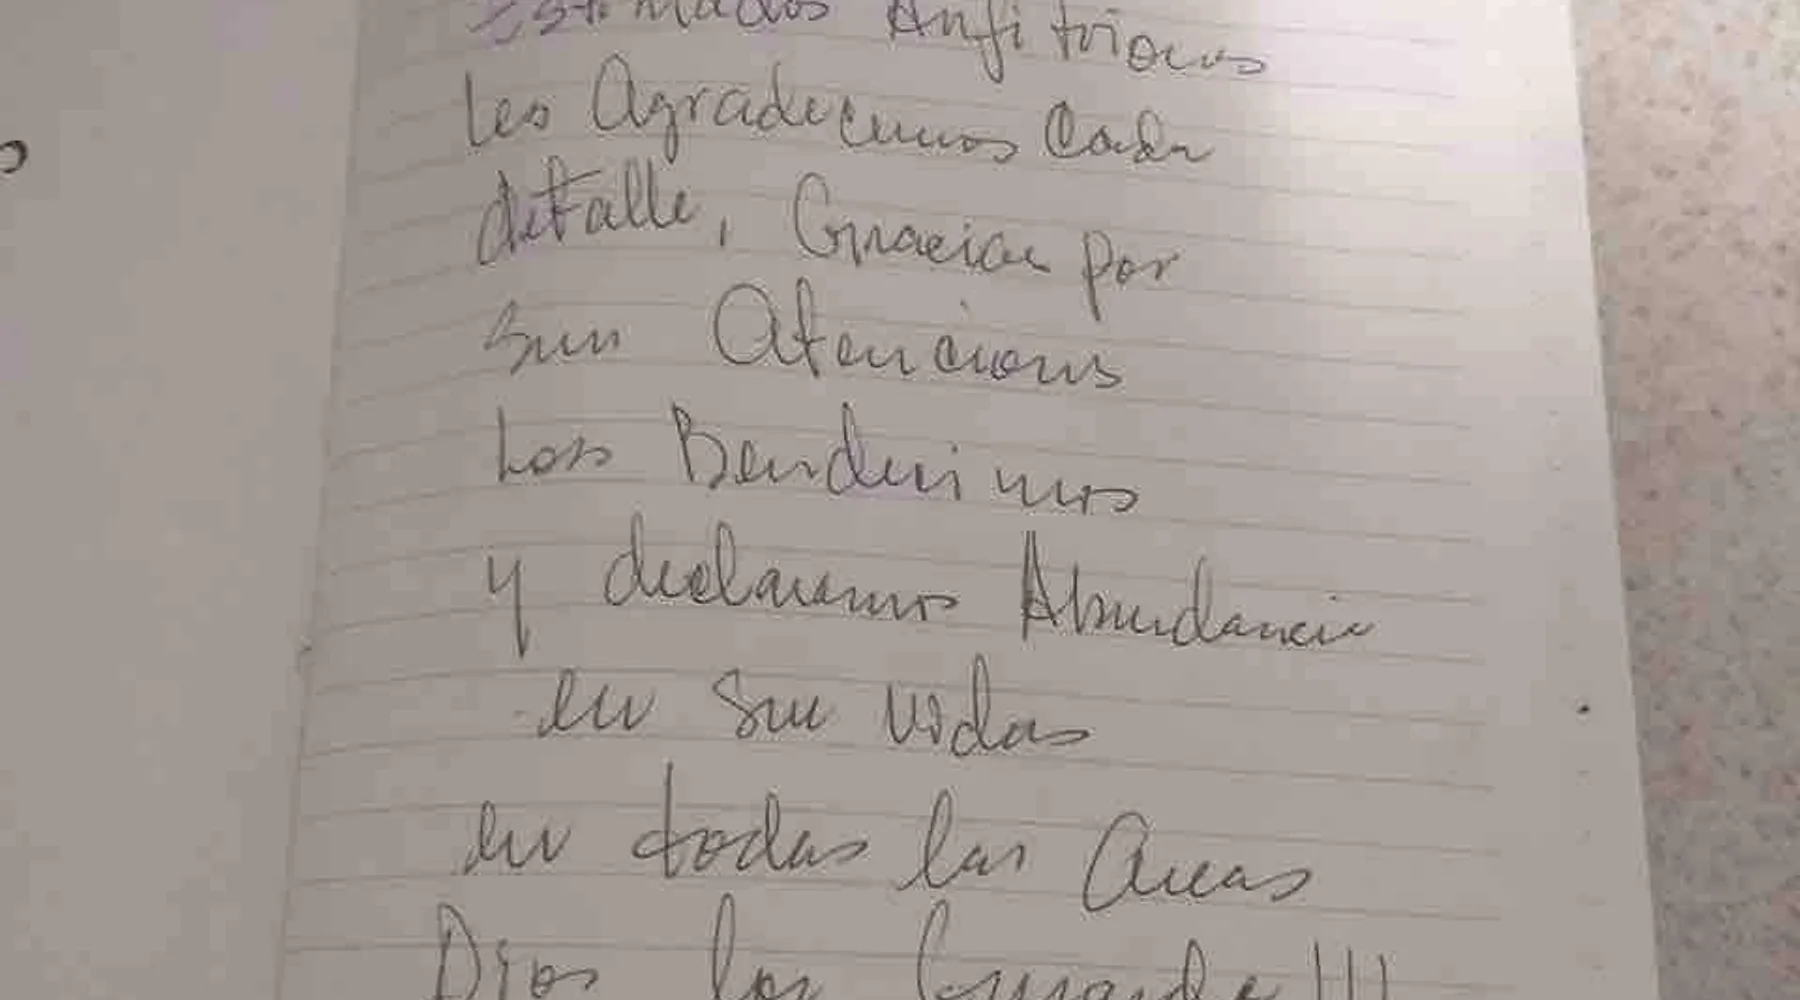 Estimados Anfitriones
les Agradecemos Cada
detalle, Gracias por
sus Atenciones
Los Bendecimos
y declaramos Abundancia
en sus vidas
en todas las Areas
Dios los Guarde!!!